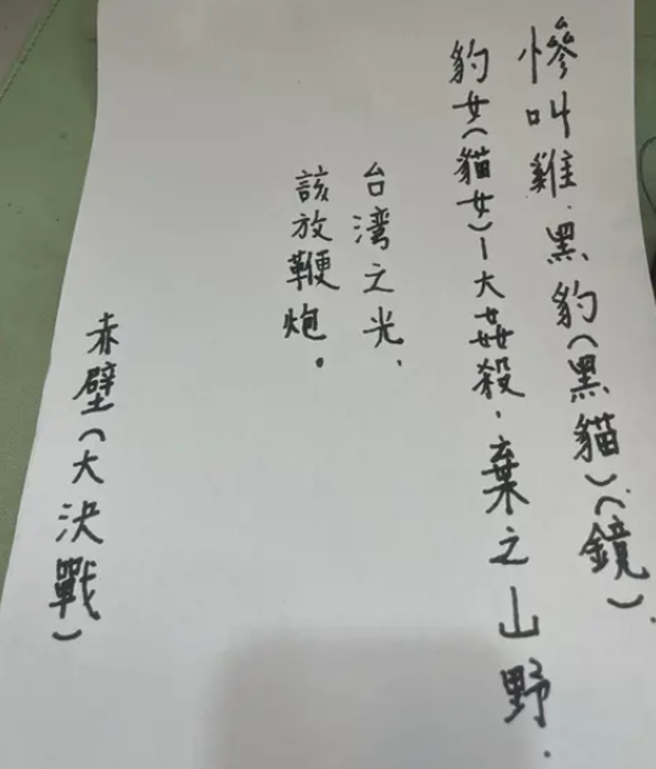 慘叫雞.黑豹(黑貓)(鏡).
豹女(貓女)—大姦殺.棄之山野.
台湾之光、
該放鞭炮。
赤壁(大決戰)